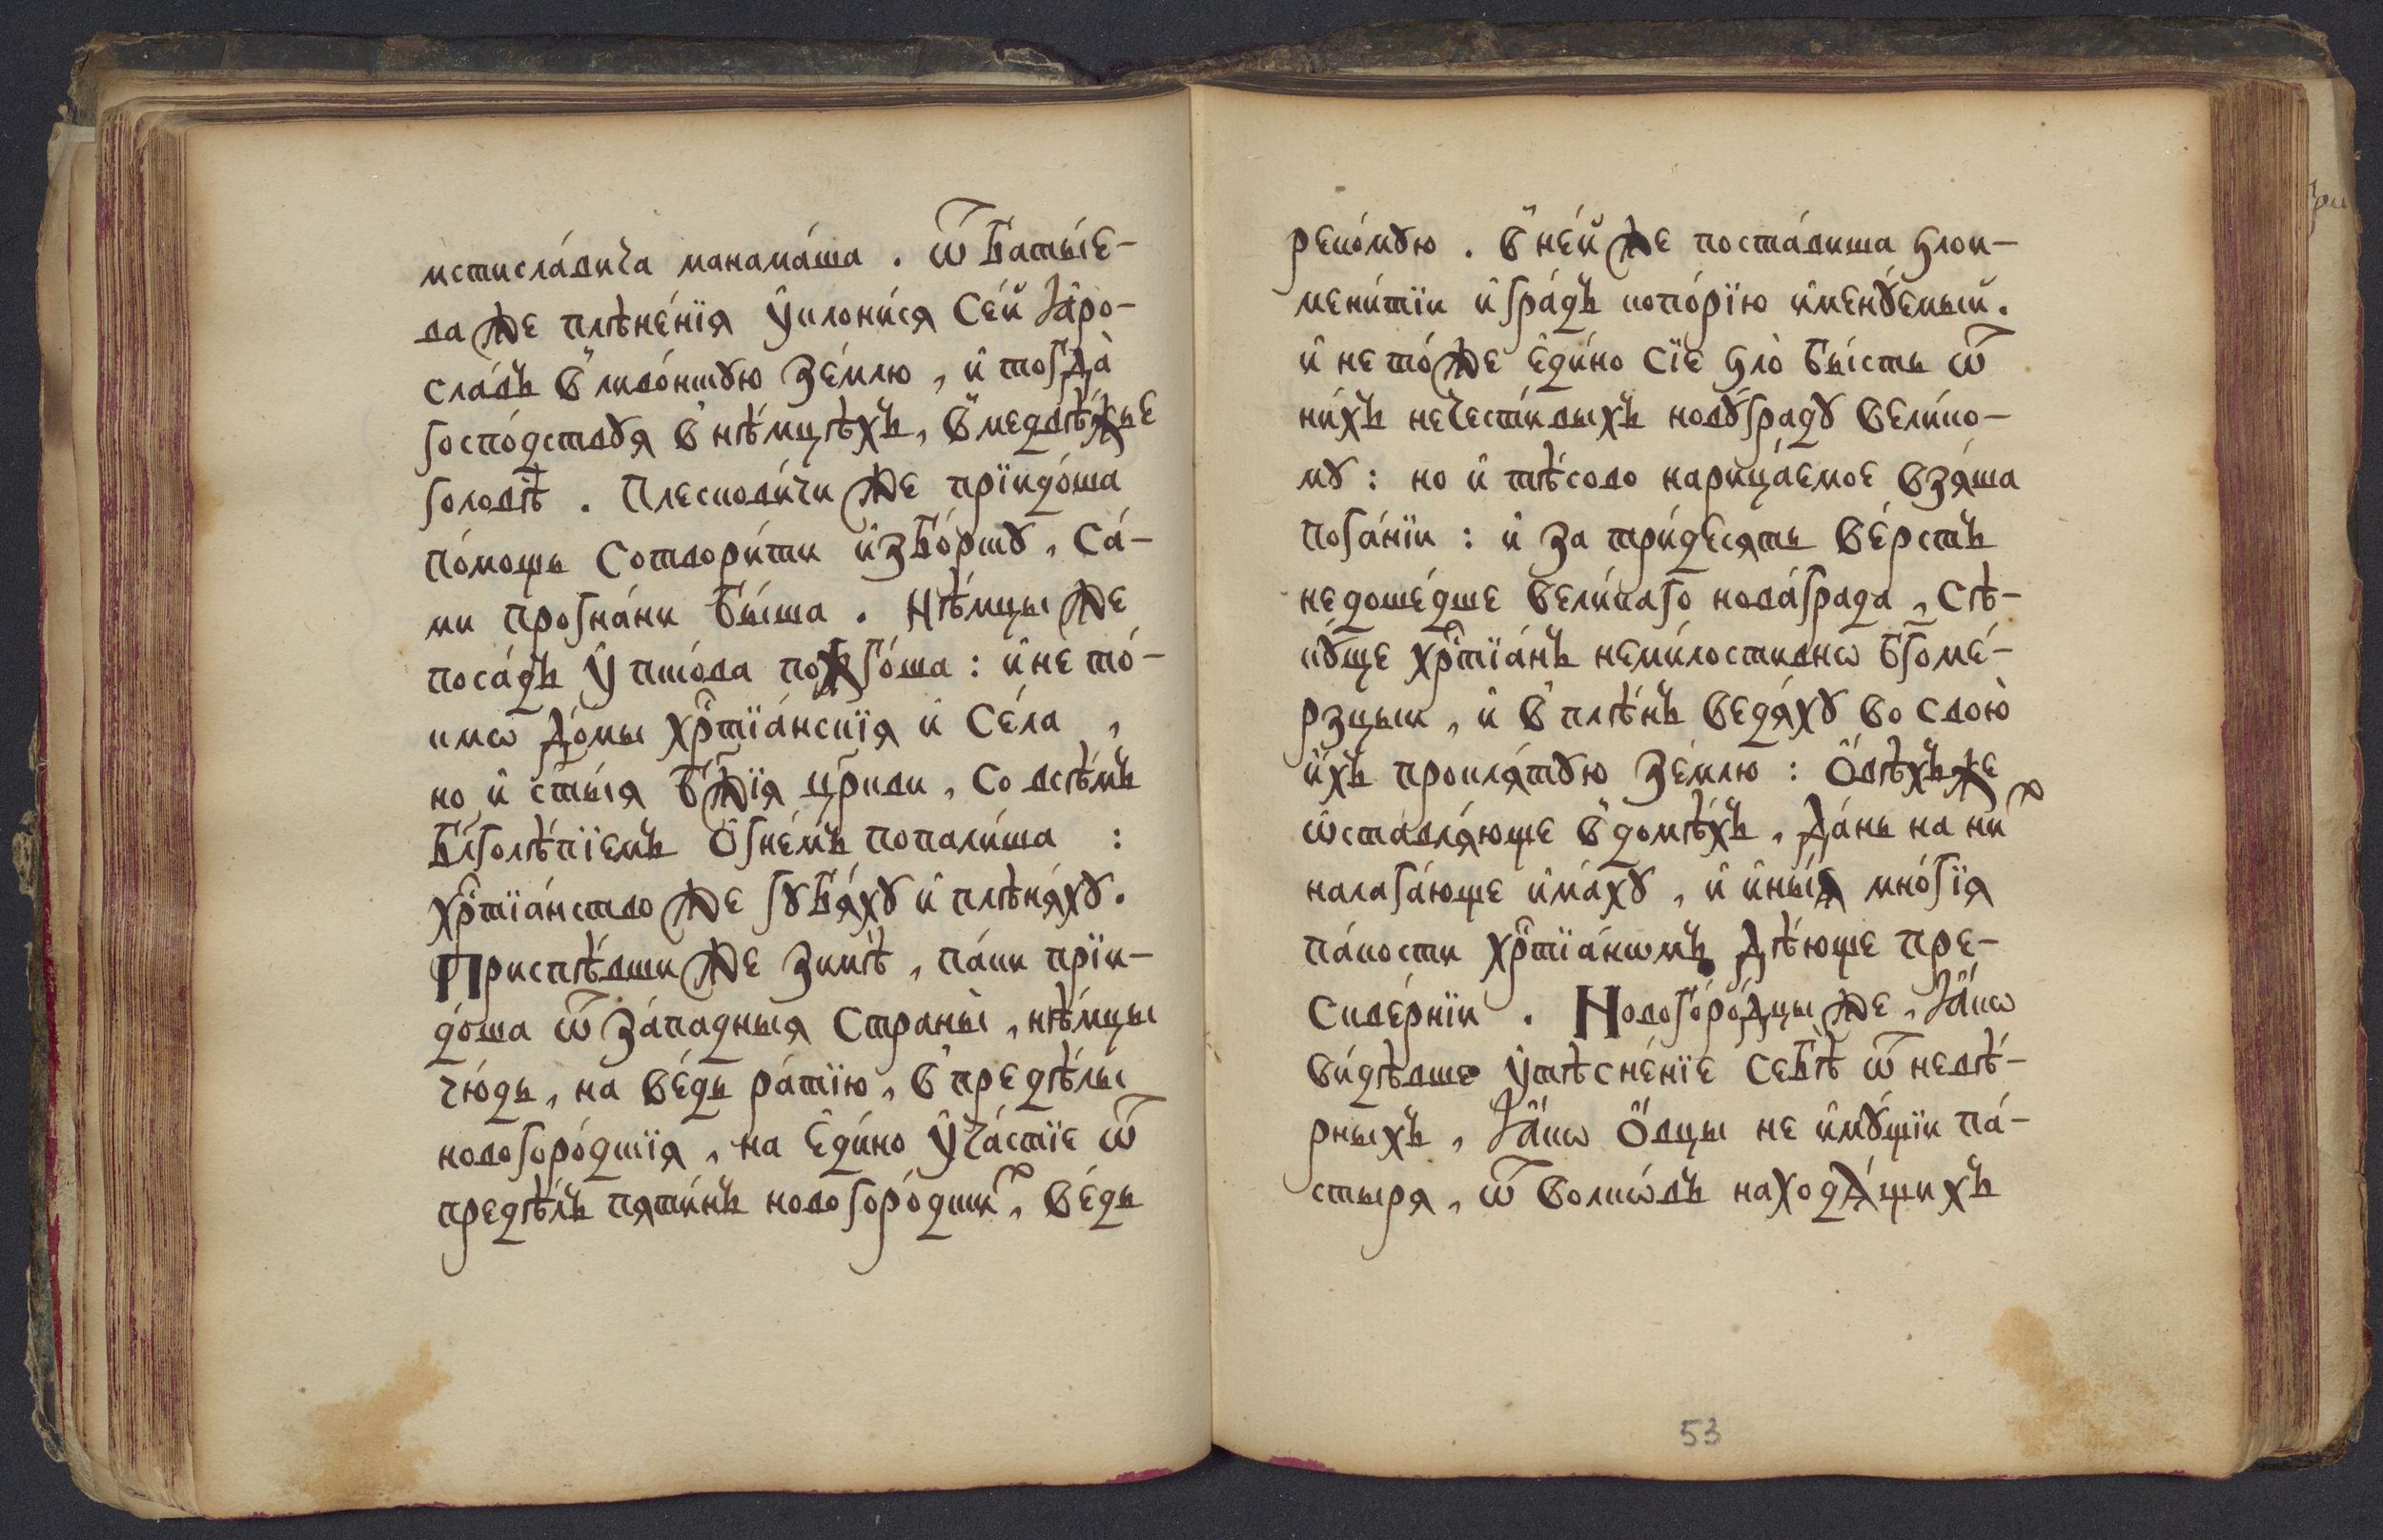 мстисла́вича манама́ша . ѿ Баты́е-
ва же плѣне́нїя у҆клони́ся се́й Ꙗ҆ро-
сла́въ в̾ ливо́нтꙋю зе́млю , и҆ тогда̀
госпо́дствꙋя в̾ нѣ́мцѣхъ , в̾ медвѣ́жье
головѣ̀ . Плескови́чи же прїидо́ша
по́мощь сотвори́ти и҆збо́рткꙋ , са́-
ми прогна́ни бы́ша . Нѣ́мцы же
поса́дъ у҆ пско́ва пожго́ша : и҆ не то́-
кмѡ до́мы хрⷭ҇тїа́нскїя и҆ се́ла ,
но и҆ ст҃ы́я бж҃їя цр҃кви , со всѣ́мъ
блг҃олѣ́пїемъ ѻ҆гне́мъ попали́ша :
хрⷭ҇тїа́нство же гꙋбя́хꙋ и҆ плѣня́хꙋ .
Приспѣ́вши же зимѣ̀ , па́ки прїи-
до́ша ѿ за́падныя страны̀ , нѣ́мцы
чю́дь , на ве́дь ра́тїю , в̾ предѣ́лы
новогоро́дткїя , на є҆ди́но у҆ча́стїе ѿ
предѣ́лъ пяти́нъ новогоро́дткиⷯ , ве́дь
реко́мꙋю . в̾ не́й же поста́виша ѕлои-
мени́тїи и҆ гра́дъ копо́рїю и҆менꙋ́емый .
и҆ не то́ же є҆ди́но сїе ѕло̀ бы́сть ѿ
ни́хъ нечести́выхъ новꙋ́градꙋ вели́ко-
мꙋ : но и҆ тѣ́сово нарица́емое взя́ша
пога́нїи : и҆ за три́десять ве́рстъ
недоше́дше вели́каго нова́града , сѣ-
кꙋ́ще хрⷭ҇тїа́нъ неми́лостивнѡ бг҃оме́-
рзцыи , и҆ в̾ плѣ́нъ ведя́хꙋ во свою̀
и҆́хъ прокля́тꙋю зе́млю : ѻ҆́вѣхъ же
ѡ҆ставля́юще в̾ домѣ́хъ , да́нь на ни́ⷯ
налага́юще и҆ма́хꙋ , и҆ и҆ны́я мно́гїя
па́кости хрⷭ҇тїа́нѡмъ дѣ́юще пре-
скве́рнїи . Новогоро́дцы же , ꙗ҆́кѡ
ви́дѣвше у҆тѣсне́нїе себѣ̀ ѿ невѣ́-
рныхъ , ꙗ҆́кѡ ѻ҆́вцы не и҆мꙋ́щїи па́-
стыря , ѿ волкѡ́въ находя́щихъ
53